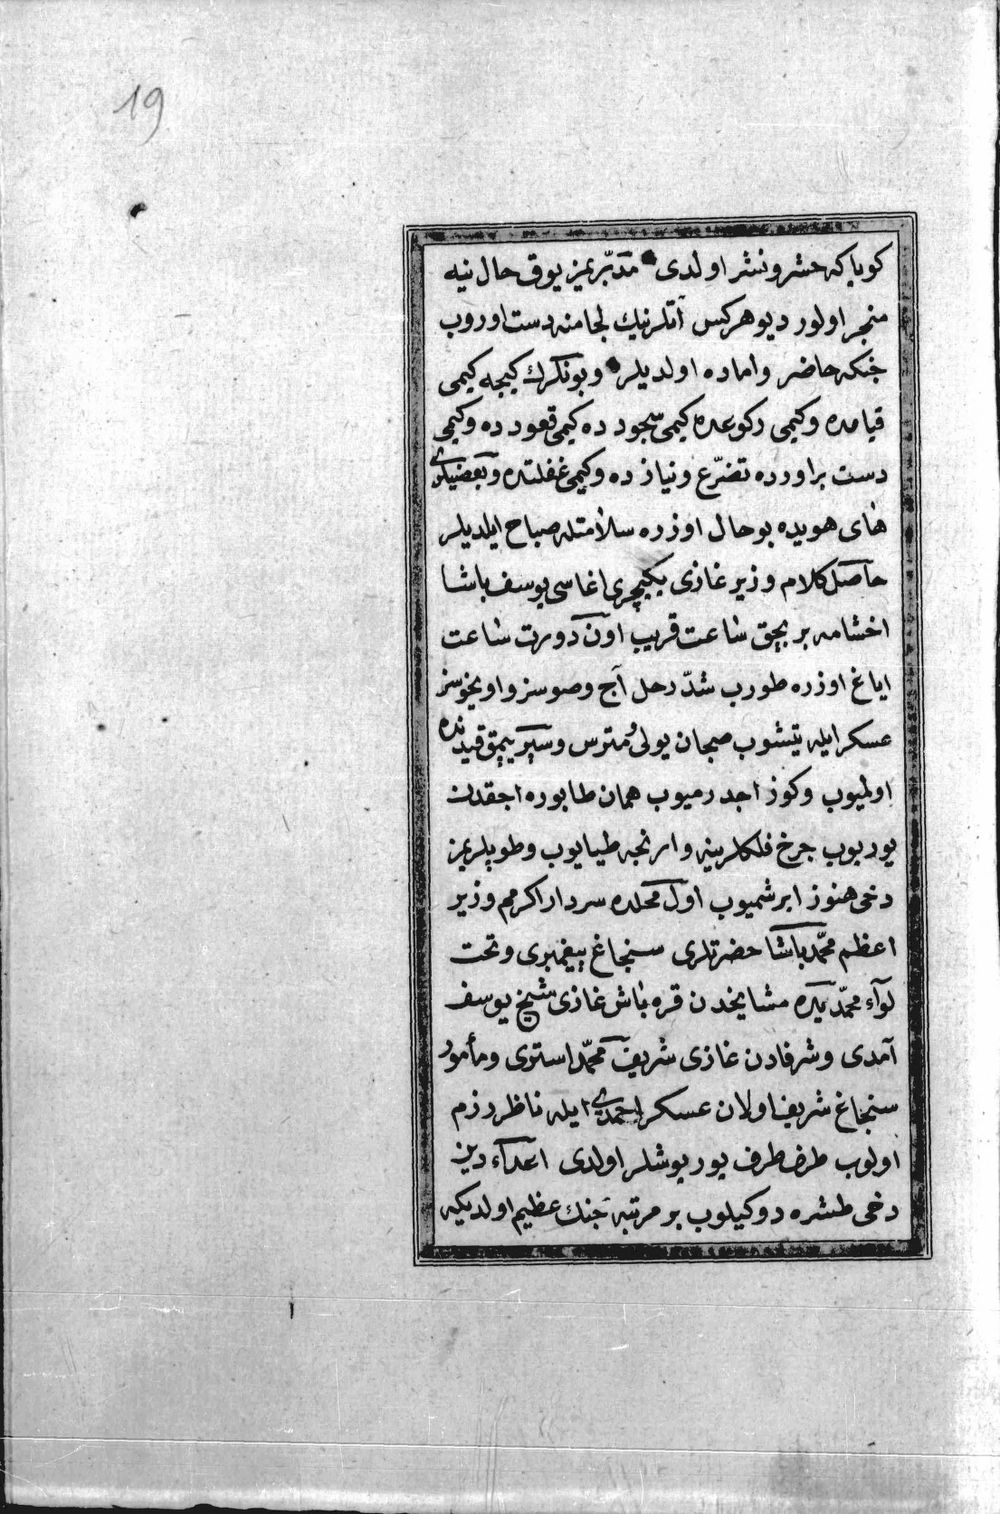 19
كويا كه حشر و نشر اولدى مدبّريمز يوق حال نيه
منجر اولور ديو هركس آتلرينك لجامنه دست اوروب
جنكه حاضر و اماده اولديلر و بونكرك كيجه كيمى
قيامده و كيمى ركوعده كيمى سجود ده كيمى قعود ده و كيمى
دست براورده تضرّع و نياز ده و كيمى غفلتده و بعضيلرى
هاى هويده بو حال اوزره سلامتله صباح ايلديلر
حاصل كلام وزير غازى يكيچرى اغاسى يوسف باشا
اخشامه بر بچق ساعت قريب اون دورت ساعت
اياغ اوزره طورب شدّ رحل آج و صوسز و اويخوسز
عسكر ايله يتيشوب صچان يولى و مترس و سپر يپمق قيدنده
اولميوب و كوز اجدرميوب همان طابوره اجقدن
يوريوب چرخ فلكلرينه وارنجه طيايوب و طوپلريمز
دخى هنوز ايرشميوب اول محلده سردار اكرم وزير
اعظم محمّد باشا حضرتلرى سنجاغ پيغمبرى و تحت
لوآء محمّديده مشايخدن قره باش غازى شيخ يوسف
آمدى و شرفادن غازى شريف محمّد استوى و مأمور
سنجاغ شريف اولان عسكر احمدى ايله ناظر رزم
اولوب طرف طرف يوريوشلر اولدى اعدآء دين
دخى طشره دوكيلوب بر مرتبه جنك عظيم اولديكه